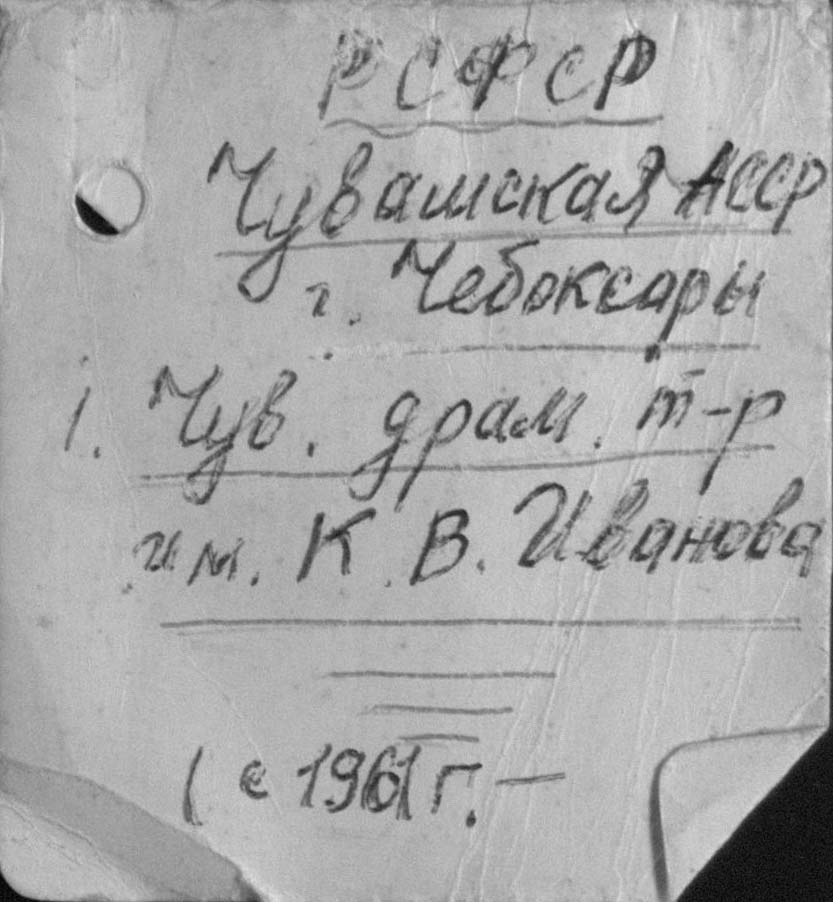 РСФСР
Чувашская АССР
г. Чебоксары
1. Чув. драм. т-р
им. К. В. Иванова
( с 1961 г. —